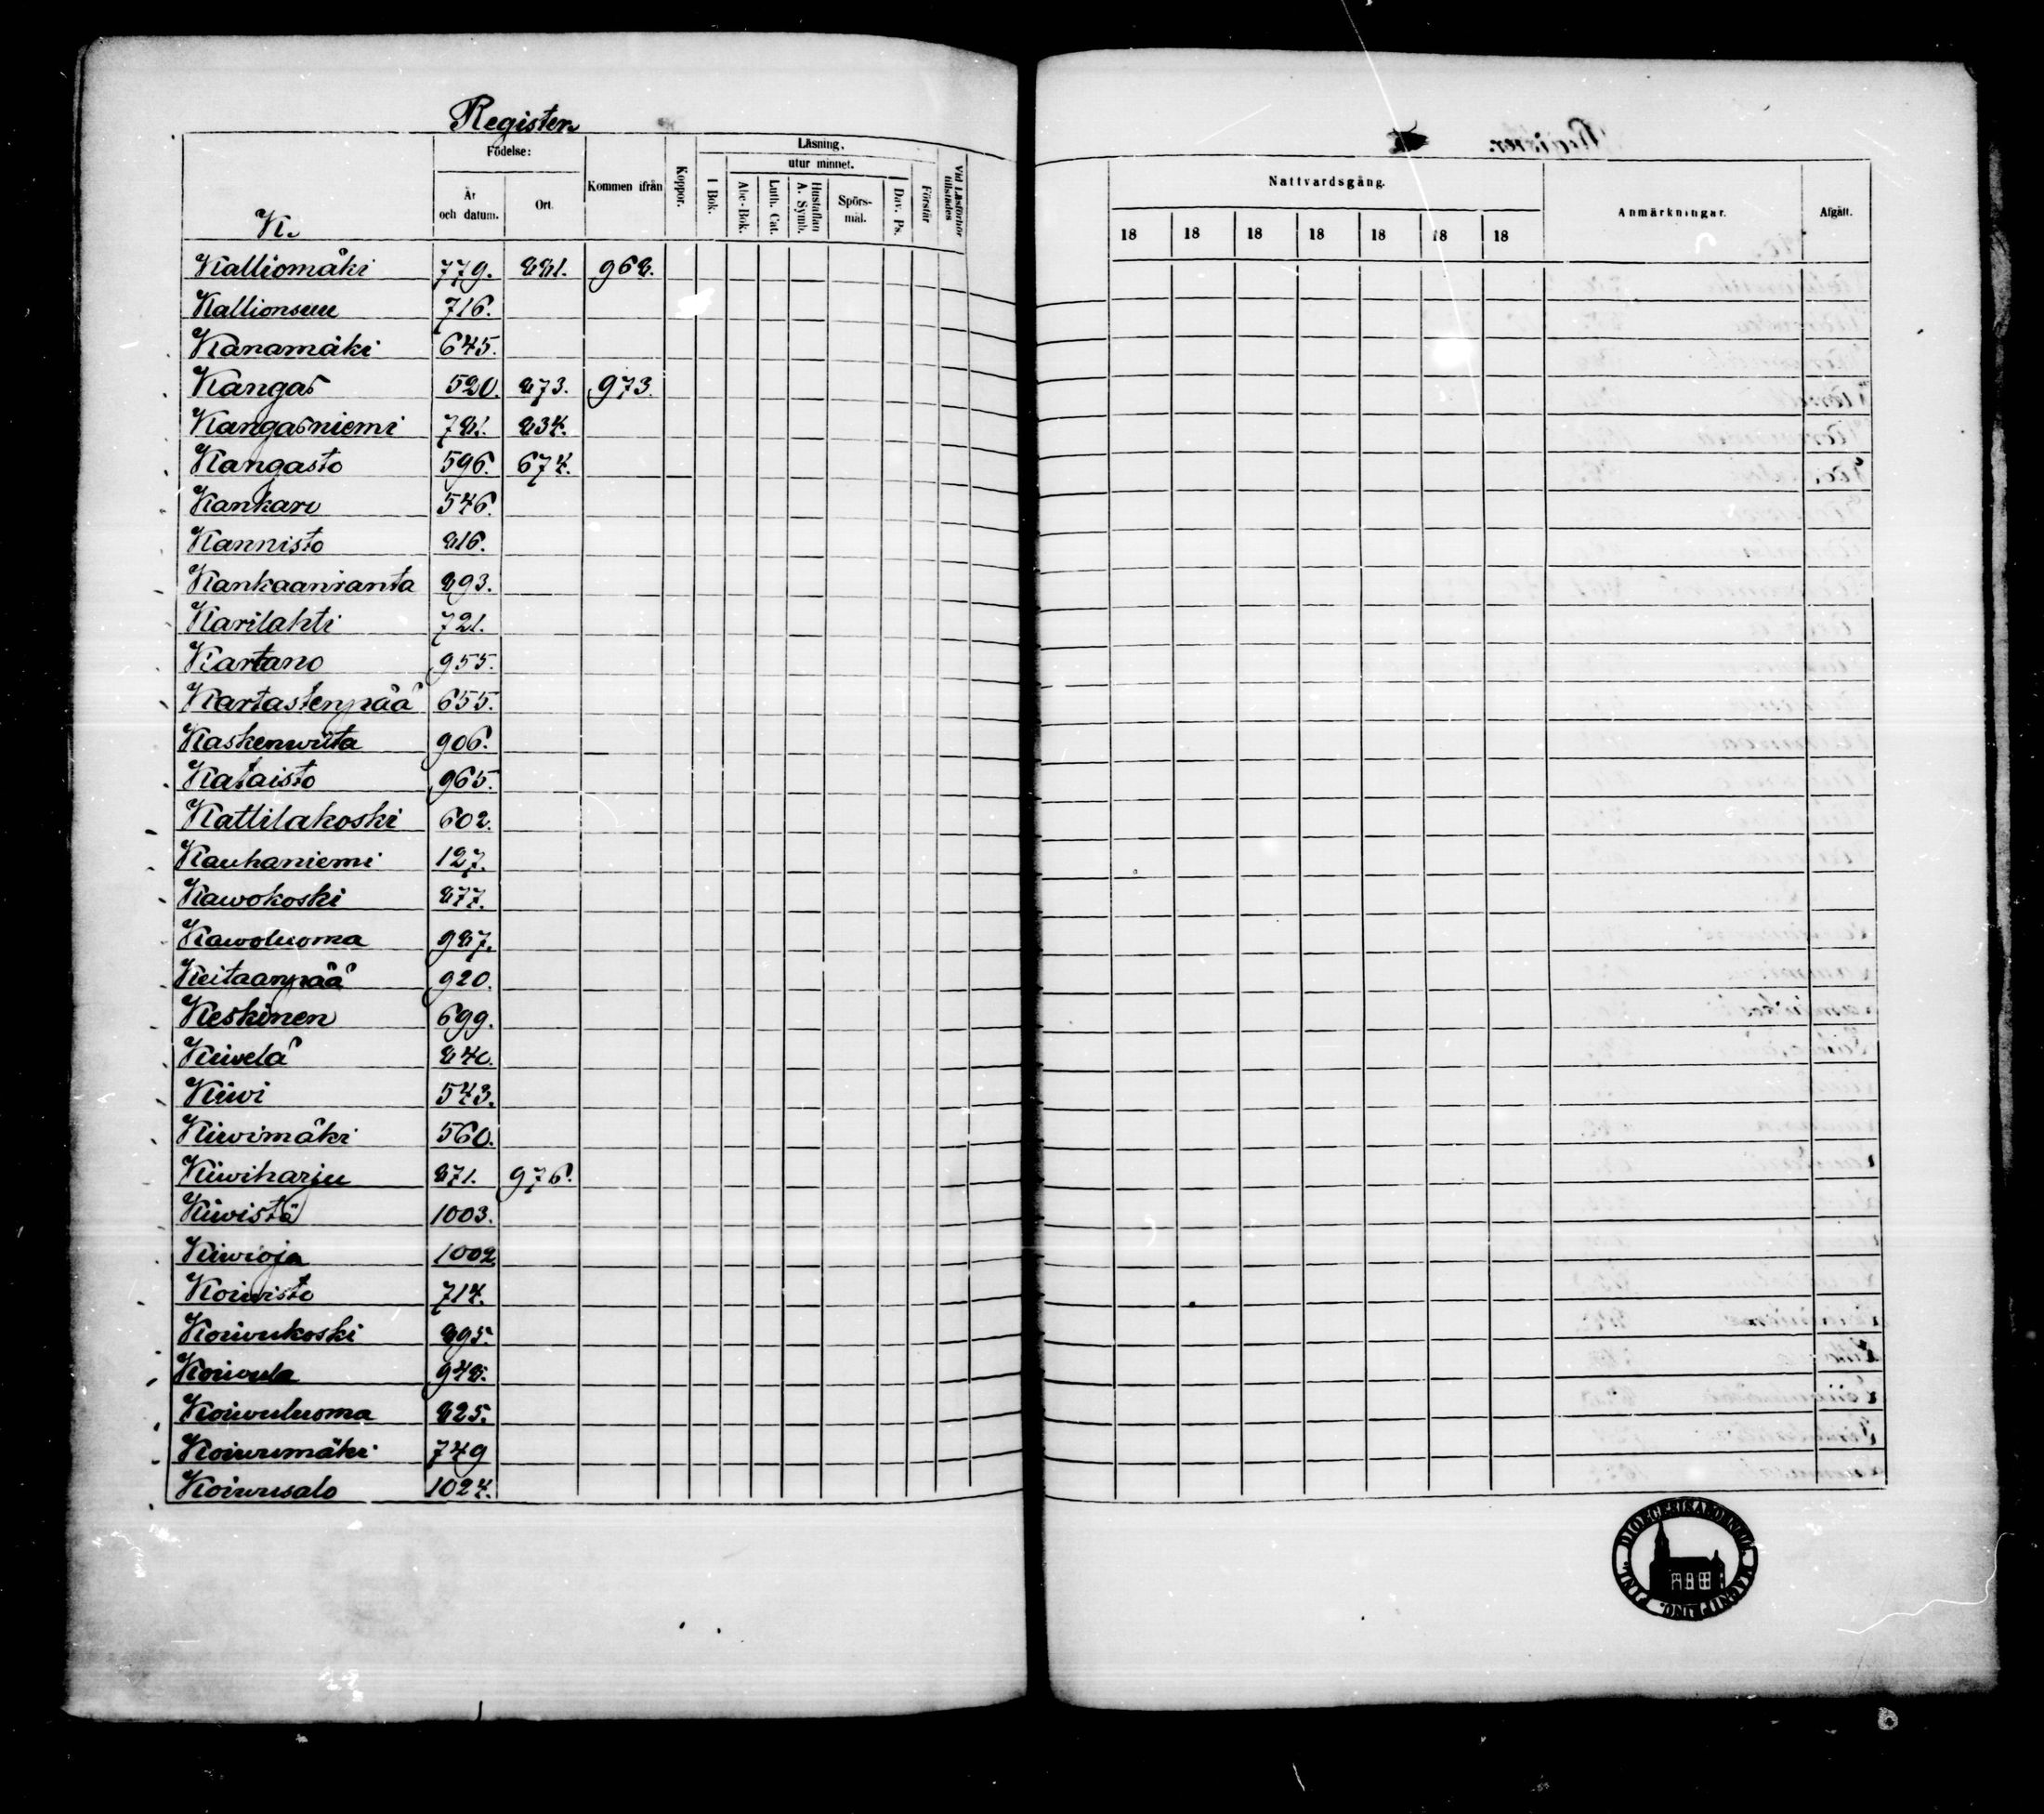 Register
Födelse:
År och datum.
Ort.
Kommen ifrån
Koppor.
Läsning.
I Bok.
utur minnet.
Abc-Bok.
Luth. Cat.
Hustaflan A. Symb.
Spörsmål.
Dav. Ps.
Förstår
Vid Läsförhör tillstädes
K.
Kalliomäki 779. 881. 968.
Kallionsuu 716.
Kanamäki 645.
Kangas 520. 873. 973.
Kangasniemi 781. 834.
Kangasto 596. 674.
Kankare 546.
Kannisto 816.
Kankaanranta 893.
Karilahti 721.
Kartano 955.
Kartastenpää 655.
Kaskenwiita 906.
Kataisto 965.
Kattilakoski 602.
Kauhaniemi 127.
Kawokoski 877.
Kawoluoma 987.
Keitaanpää 920.
Keskinen 699.
Kiwelä 840.
Kiwi 543.
Kiwimäki 560.
Kiwiharju 871. 976.
Kiwistö 1003.
Kiwioja 1002
Koiwisto 714.
Koiwukoski 895.
Koiwula 948.
Koiwuluoma 825.
Koiwumäki 749
Koiwusalo 1024.
Nattvardsgång.
18 18 18 18 18 18 18
Anmärkningar.
Afgått.